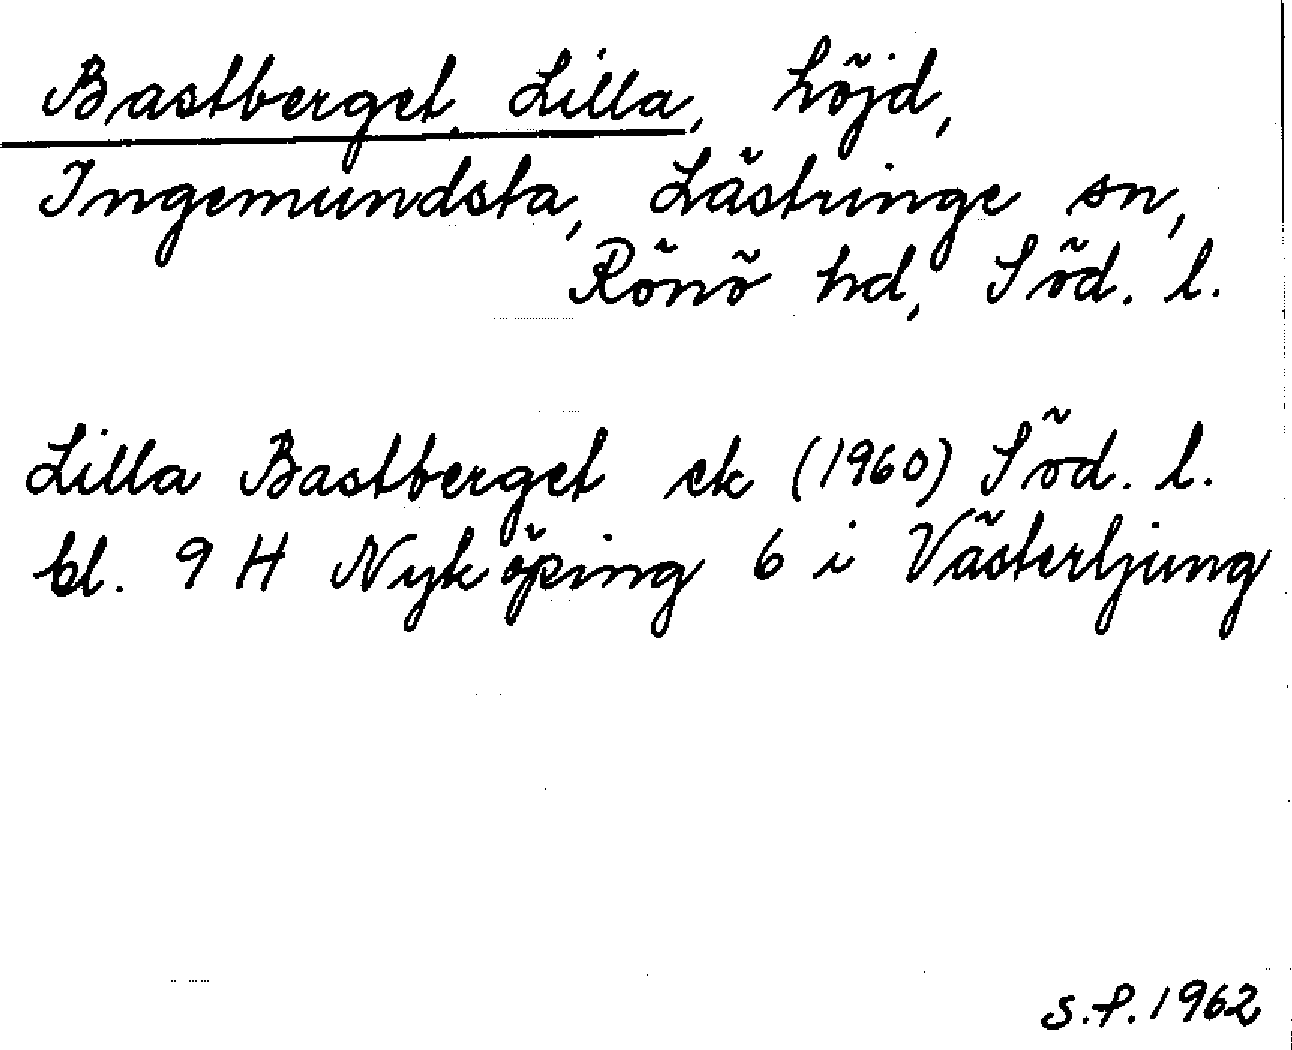 Bastberget, Lilla, höjd,
Ingemundsta, Lästringe sn,
Rönö hd, Söd. l.
Lilla Bastberget ek (1960) Söd. l.
bl. 9 H Nyköping 6 i Västerljung
S.P. 1962